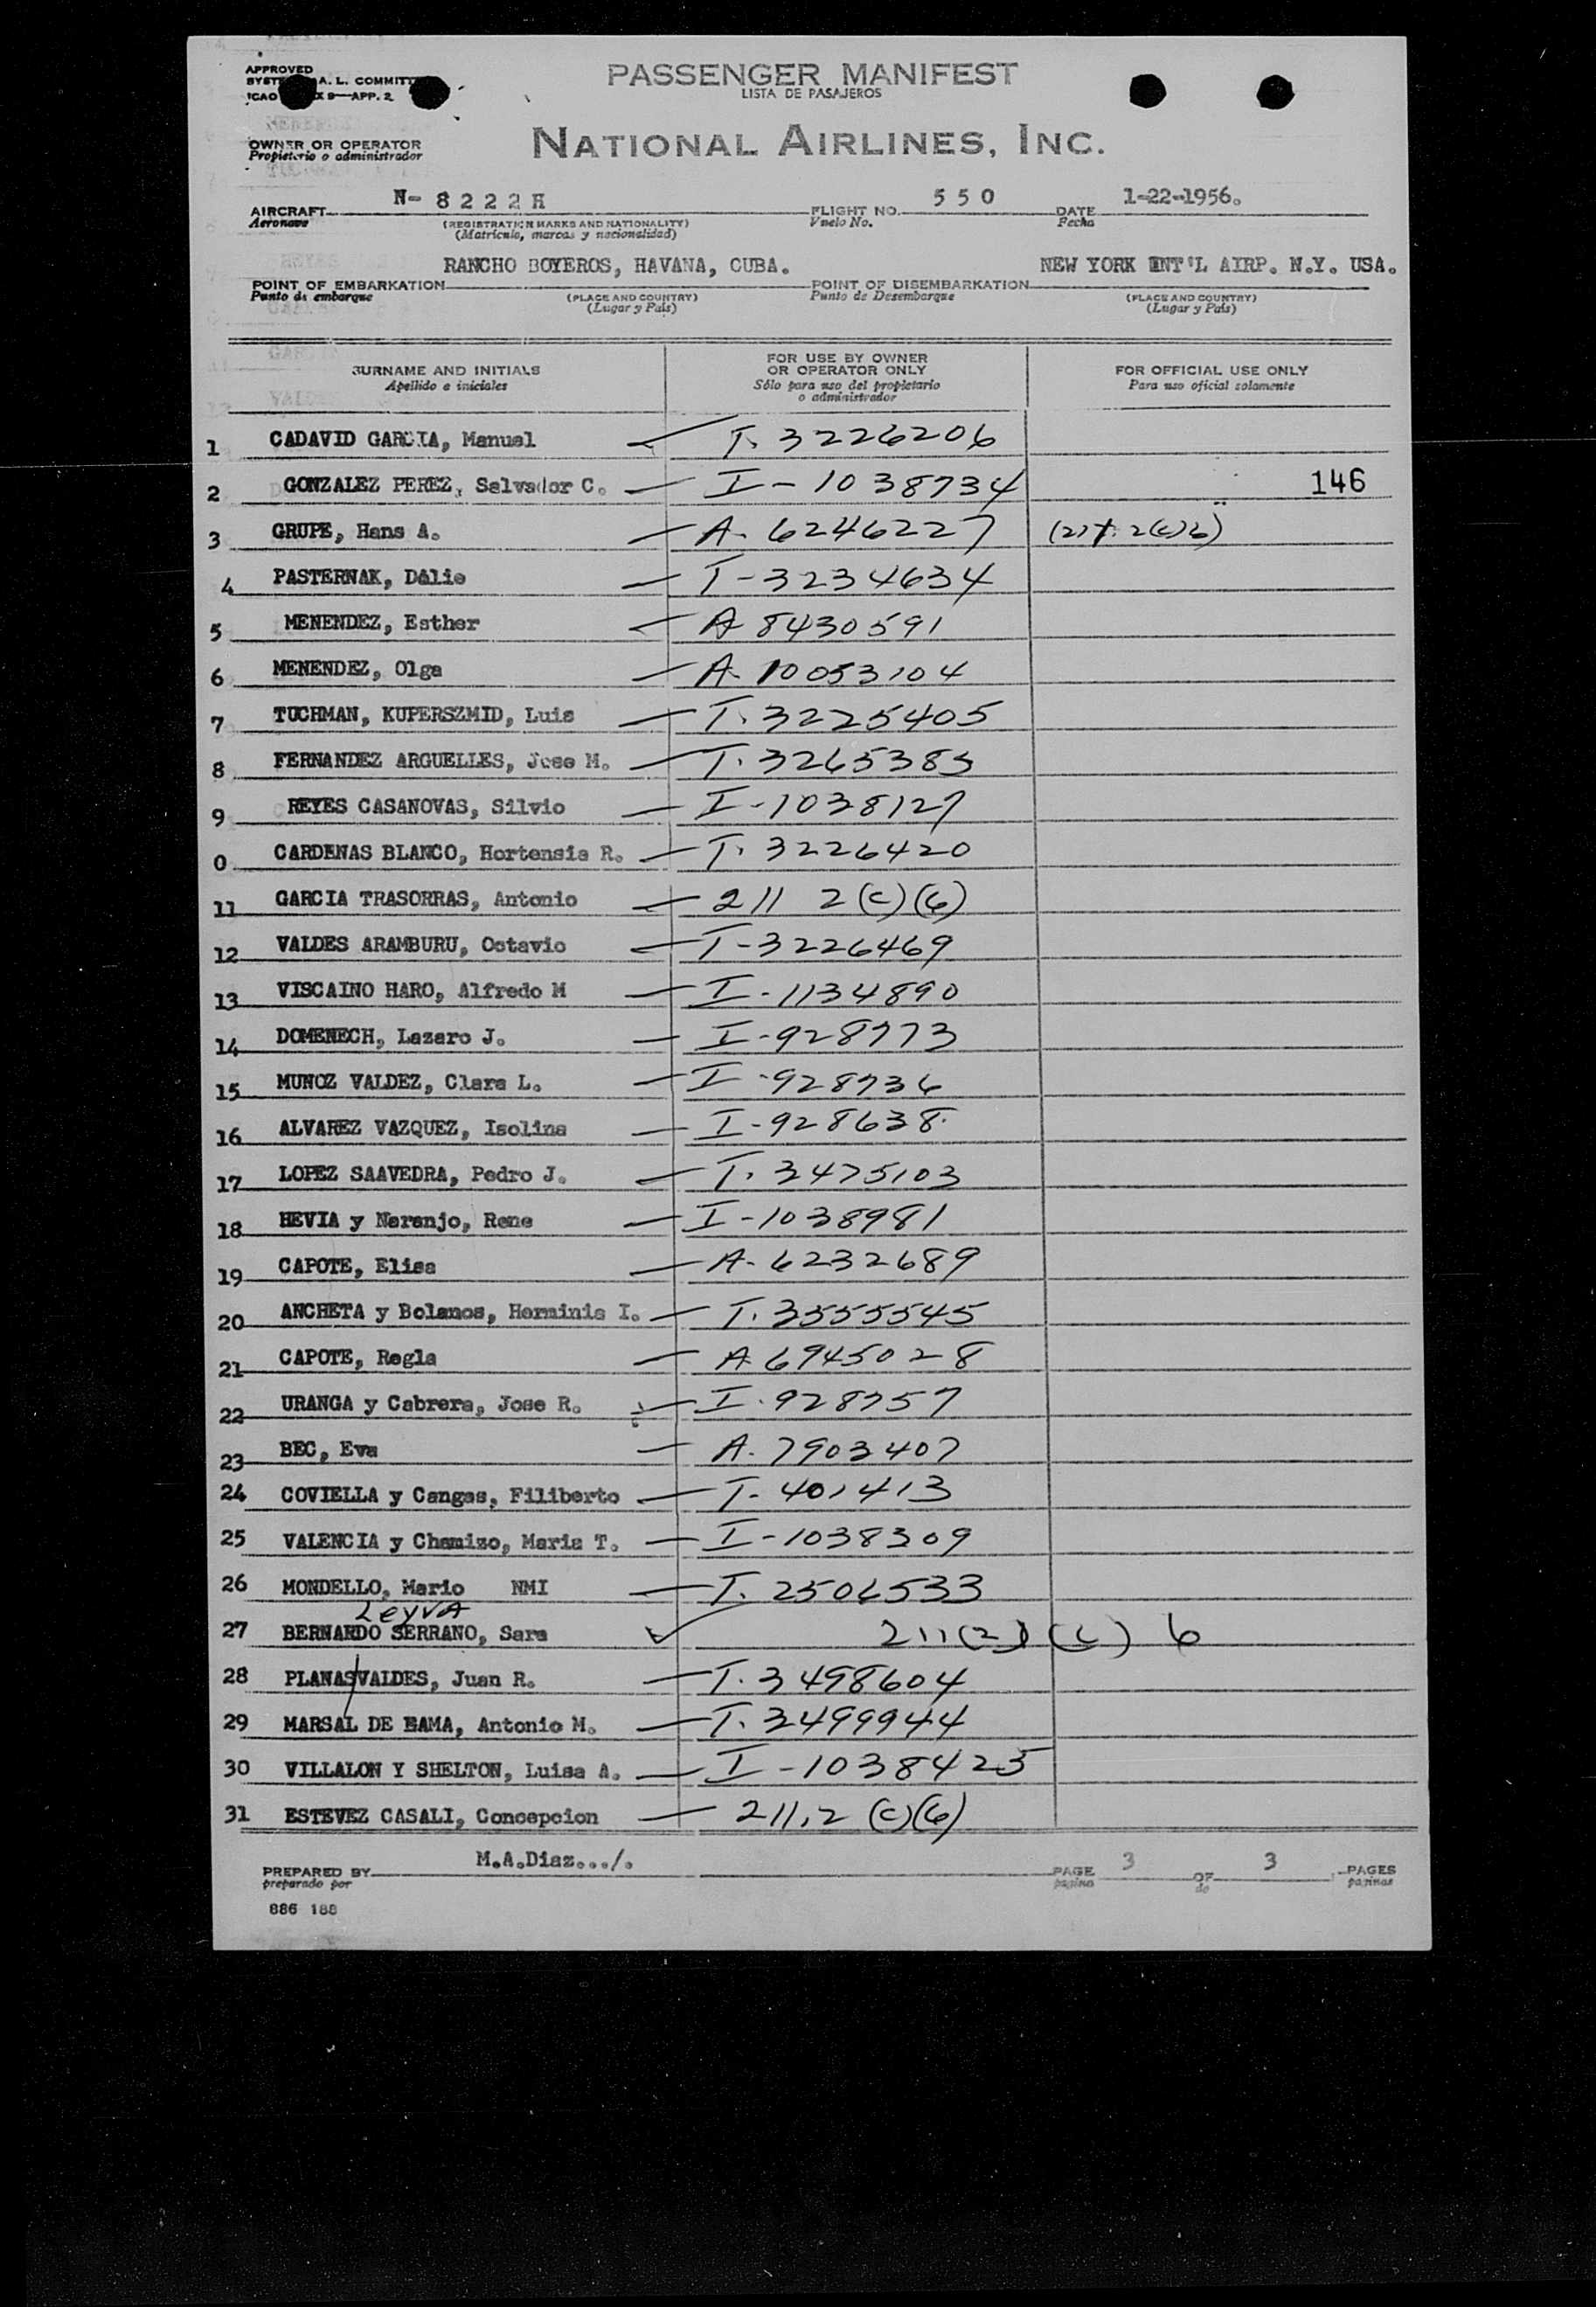 APPROVED
A. L. COMMITT
ICAO X 9—APP. 2
PASSENGER MANIFEST
LISTA DE PASAJEROS
OWNER OR OPERATOR
Propietario o administrador
NATIONAL AIRLINES, INC.
AIRCRAFT N- 8 2 2 2 H FLIGHT NO. 5 5 0 DATE 1-22-1956.
Aeronave (REGISTRATION MARKS AND NATIONALITY) Vuelo No. Fecha
(Matrícula, marcas y nacionalidad)
RANCHO BOYEROS, HAVANA, CUBA. NEW YORK INT'L AIRP. N.Y. USA.
POINT OF EMBARKATION POINT OF DISEMBARKATION
Punto de embarque (PLACE AND COUNTRY) Punto de Desembarque (PLACE AND COUNTRY)
(Lugar y País) (Lugar y País)
SURNAME AND INITIALS FOR USE BY OWNER OR OPERATOR ONLY FOR OFFICIAL USE ONLY
Apellido e iniciales Sólo para uso del propietario o administrador Para uso oficial solamente
1 CADAVID GARCIA, Manuel T. 3226206
2 GONZALEZ PEREZ, Salvador C. I - 1038734 146
3 GRUPE, Hans A. A. 6246227
4 PASTERNAK, Dalie T-3234634
5 MENENDEZ, Esther A 8430591
6 MENENDEZ, Olga A. 10053104
7 TUCHMAN, KUPERSZMID, Luis T. 3225405
8 FERNANDEZ ARGUELLES, Jose M. T. 3265383
9 REYES CASANOVAS, Silvio I-1038127
0 CARDENAS BLANCO, Hortensia R. T. 3226420
11 GARCIA TRASORRAS, Antonio 211 2(c)(6)
12 VALDES ARAMBURU, Octavio T-3226469
13 VISCAINO HARO, Alfredo M I-1134890
14 DOMENECH, Lazaro J. I-928773
15 MUNOZ VALDEZ, Clara L. I-928736
16 ALVAREZ VAZQUEZ, Isolina I-928638.
17 LOPEZ SAAVEDRA, Pedro J. T. 3475103
18 HEVIA y Naranjo, Rene I-1038981
19 CAPOTE, Elisa A-6232689
20 ANCHETA y Bolanos, Herminia I. T. 3555545
21 CAPOTE, Regla A 6945028
22 URANGA y Cabrera, Jose R. I. 928757
23 BEC, Eva A. 7903407
24 COVIELLA y Cangas, Filiberto T-401413
25 VALENCIA y Chamizo, Maria T. I-1038309
26 MONDELLO, Mario NMI T. 2506533
Leyva
27 BERNARDO SERRANO, Sara 211(2)(c) 6
28 PLANAS/VALDES, Juan R. T. 3498604
29 MARSAL DE BAMA, Antonio M. T. 3499944
30 VILLALON Y SHELTON, Luisa A. I-1038425
31 ESTEVEZ CASALI, Concepcion 211.2 (c)(6)
PREPARED BY M.A.Diaz.../. PAGE 3 OF 3 PAGES
preparado por pagina de paginas
886 188